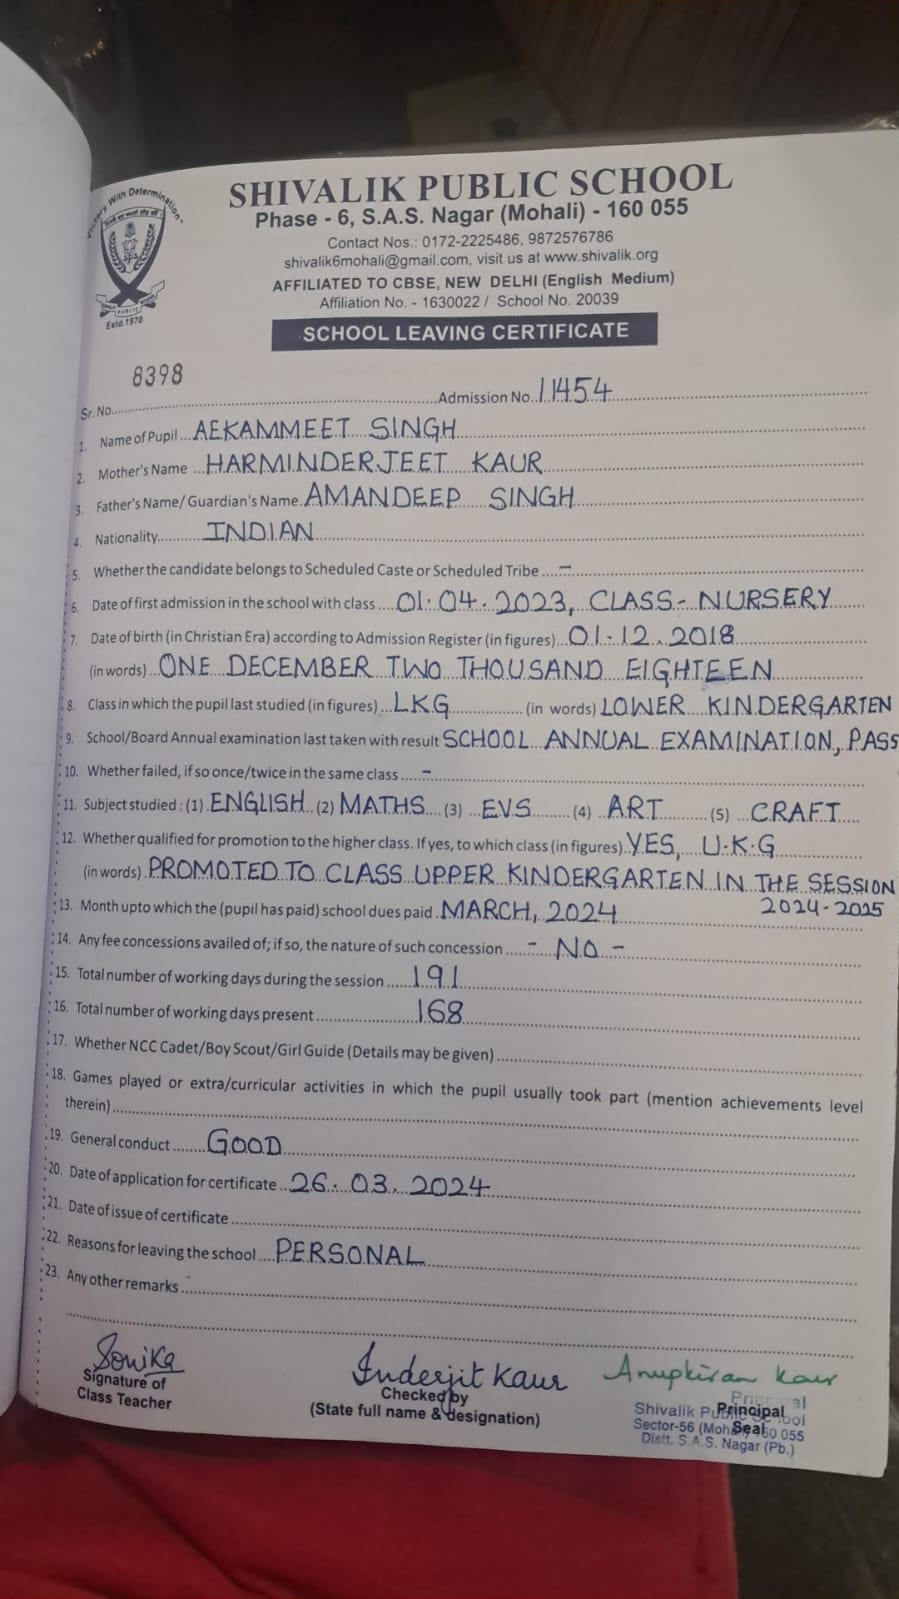 "Victory With Determination"
SHIVALIK PUBLIC SCHOOL
Phase - 6, S.A.S. Nagar (Mohali) - 160 055
Contact Nos.: 0172-2225486, 9872576786
shivalik6mohali@gmail.com, visit us at www.shivalik.org
AFFILIATED TO CBSE, NEW DELHI (English Medium)
Affiliation No. - 1630022 / School No. 20039
Estd.1970
SCHOOL LEAVING CERTIFICATE
8398
Sr. No. Admission No. 11454
1. Name of Pupil AEKAMMEET SINGH
2. Mother's Name HARMINDERJEET KAUR
3. Father's Name/ Guardian's Name AMANDEEP SINGH
4. Nationality INDIAN
5. Whether the candidate belongs to Scheduled Caste or Scheduled Tribe –
6. Date of first admission in the school with class 01.04.2023, CLASS-NURSERY
7. Date of birth (in Christian Era) according to Admission Register (in figures) 01-12.2018
(in words) ONE DECEMBER TWO THOUSAND EIGHTEEN
8. Class in which the pupil last studied (in figures) LKG (in words) LOWER KINDERGARTEN
9. School/Board Annual examination last taken with result SCHOOL ANNUAL EXAMINATION, PASS
10. Whether failed, if so once/twice in the same class –
11. Subject studied : (1) ENGLISH (2) MATHS (3) EVS (4) ART (5) CRAFT
12. Whether qualified for promotion to the higher class. If yes, to which class (in figures) YES, U.K.G
(in words) PROMOTED TO CLASS UPPER KINDERGARTEN IN THE SESSION
2024-2025
13. Month upto which the (pupil has paid) school dues paid MARCH, 2024
14. Any fee concessions availed of; if so, the nature of such concession - NO -
15. Total number of working days during the session 191
16. Total number of working days present 168
17. Whether NCC Cadet/Boy Scout/Girl Guide (Details may be given)
18. Games played or extra/curricular activities in which the pupil usually took part (mention achievements level
therein)
19. General conduct GOOD
20. Date of application for certificate 26.03.2024
21. Date of issue of certificate
22. Reasons for leaving the school PERSONAL
23. Any other remarks
Sonika Inderjit Kaur Anupkiran Kaur
Signature of
Class Teacher
Checked by
(State full name & designation)
Principal
Seal
Principal
Shivalik Public School
Sector-56 (Mohali) 160 055
Distt. S.A.S. Nagar (Pb.)